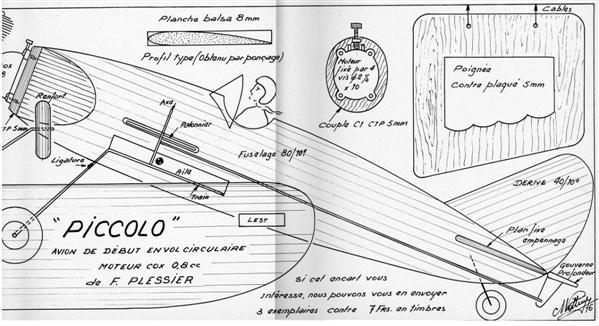 Planche balsa 8mm
Profil type (Obtenu par ponçage)
Cox
8
Renfort
CTP 5mm
Axe
Palonnier
Ligature
Aile
Train
Fuselage 80/10è
Moteur
fixé par 4
vis
x 10
Couple C1 CTP 5mm
Câbles
Poignée
contre plaqué 5mm
DERIVE 40/10è
Plan fixe
empennage
Gouverne
Profondeur
LEST
"PiCCOLO"
AVION DE DÉBUT EN VOL CIRCULAIRE
MOTEUR COX 0,8cc
de F. PLESSIER
Si cet encart vous
intéresse, nous pouvons vous en envoyer
3 exemplaires contre 7 Frs. en timbres